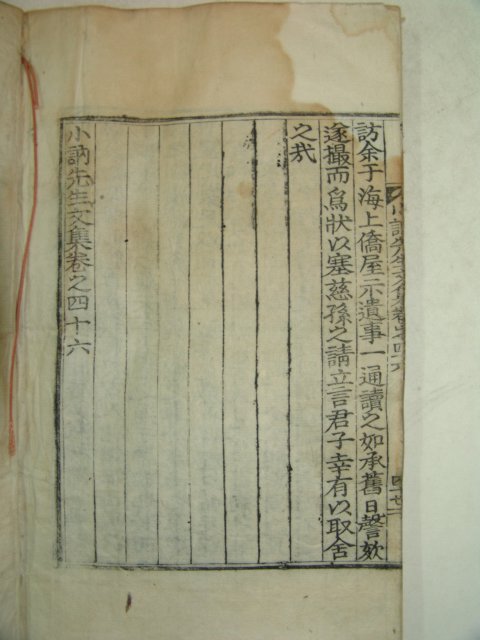 訪余于海上僑屋示遺事一通讀之如承舊日謦欬
遂撮而爲狀以塞慈孫之請立言君子幸有以取舍
之哉
小訥先生文集卷之四十六